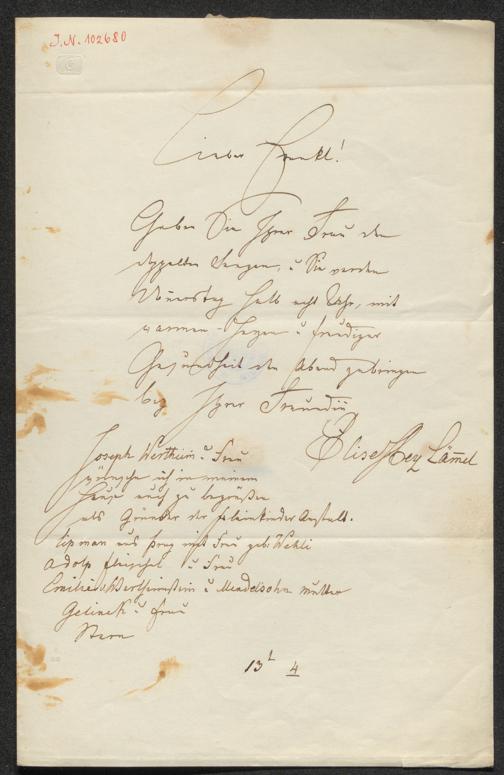 I.N. 102680
Lieber Frankl!
Geben Sie Ihrer Frau den
doppelten Segen, u Sie werden
Donnerstag halb acht Uhr, mit
warmen Herzen u freudiger
Gesundheit den Abend zubringen
bey Ihrer Freundin
Elise Herz Lämel
Joseph Wertheim u Frau
wünsche ich in meinem
Hause auch zu begrüßen
als Gründer der Kleinkinder Anstalt.
Lipman aus Prag mit Frau geb: Wehli
Adolf Fleischel u Frau
Emilie Wertheimstein u Mendelsohn Mutter
Gelinek u Frau
Stern
13 4